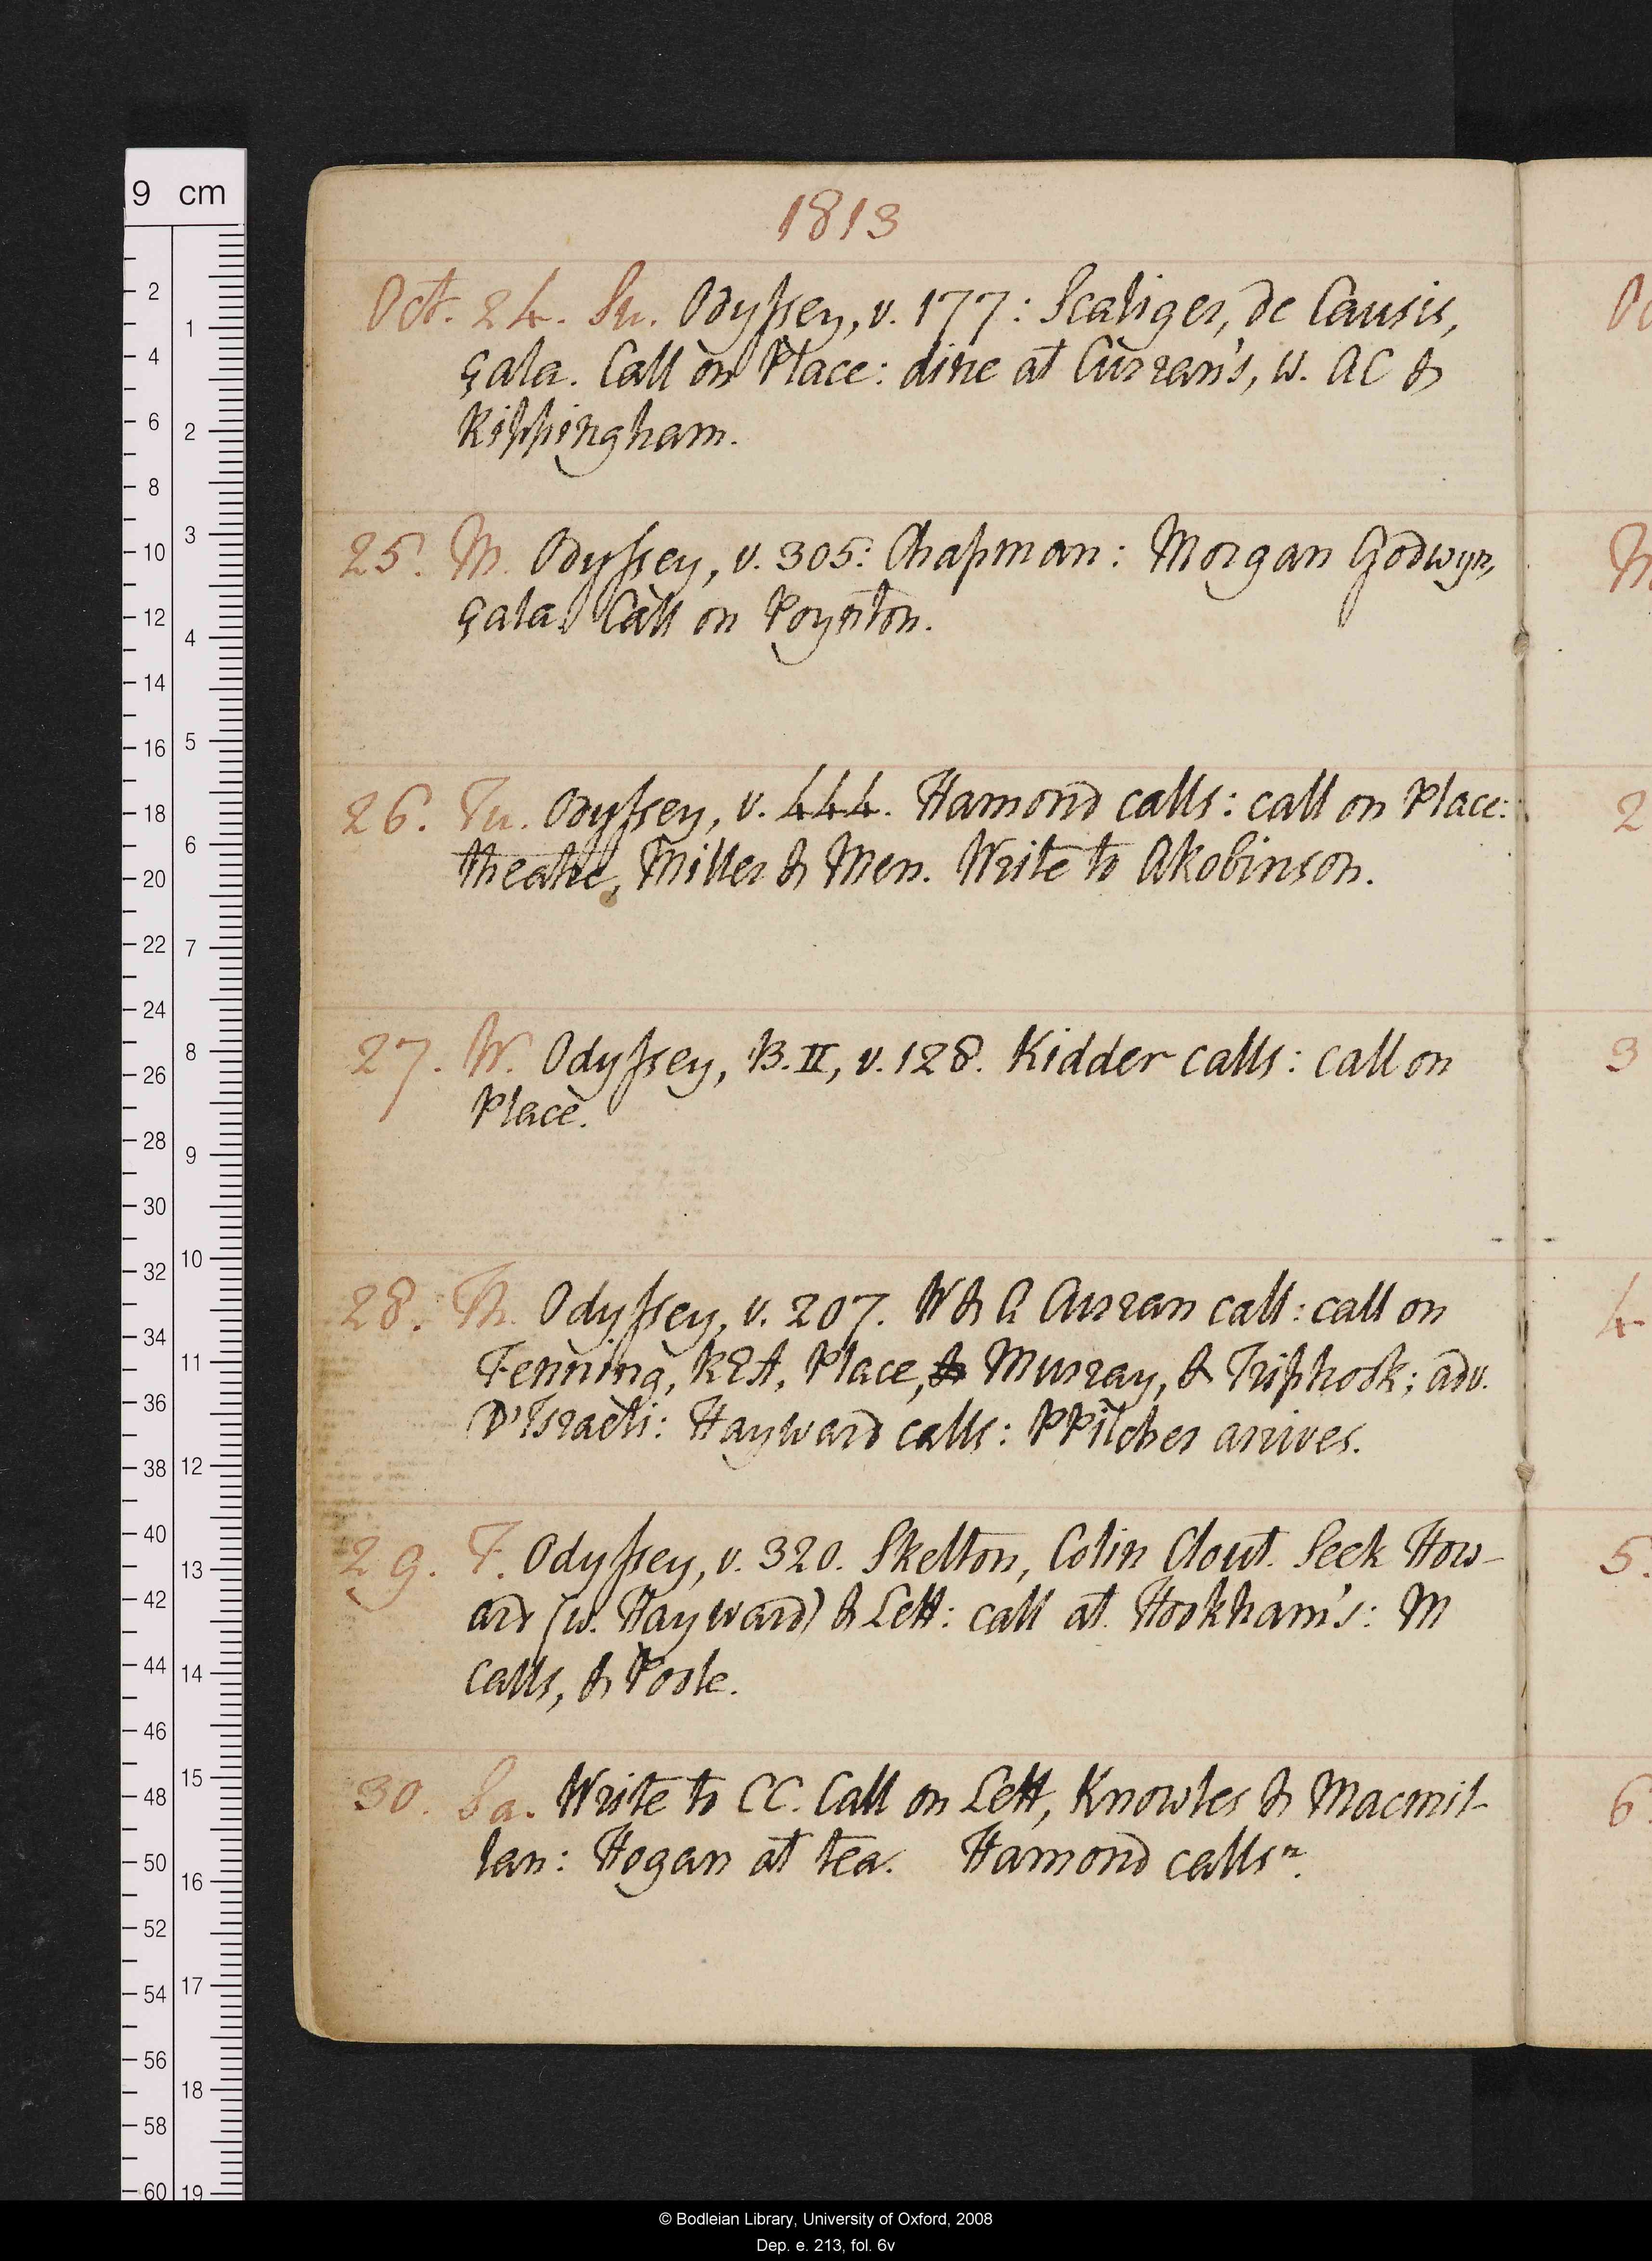 1813
Oct. 24. Su. Odyssey, v. 177: Scaliger, de Causis,
çala. Call on Place: dine at Curran's, w. AC &
Kippingham.
25. M. Odyssey, v. 305: Chapman: Morgan Godwyn,
çala. Call on Poynton.
26. Tu. Odyssey, v. 444. Hamond calls: call on Place:
theatre, Miller & Men. Write to ARobinson.
27. W. Odyssey, B. II, v. 128. Kidder calls: call on
Place.
28. Th. Odyssey, v. 207. W & A Curran call: call on
Fenning, Place, & Murray, & Triphook; adv.
D'Israeli: Hayward calls: PPilcher arrives.
29. F. Odyssey, v. 320. Skelton, Colin Clout. Seek How-
ard (w. Hayward) & Lett: call at Hookham's: M
calls, & Poole.
30. Sa. Write to CC. Call on Lett, Knowles & Macmil-
lan: Hogan at tea. Hamond calls n.
9 cm
© Bodleian Library, University of Oxford, 2008
Dep. e. 213, fol. 6v